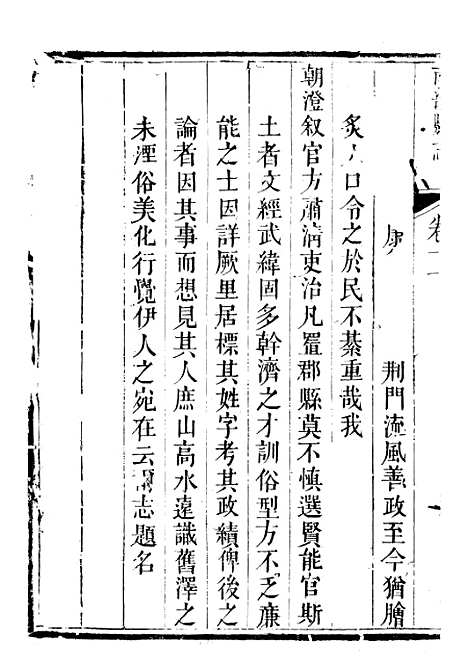 縣志 卷
荆門流風善政至今猶膾
炙人口令之於民不綦重哉我
朝澄叙官方肅清吏治凡置郡縣莫不慎選賢能官斯
土者文經武緯固多幹濟之才訓俗型方不乏廉
能之士因詳厥里居標其姓字考其政績俾後之
論者因其事而想見其人庶山高水遠識舊澤之
未湮俗美化行覺伊人之宛在云爾志題名